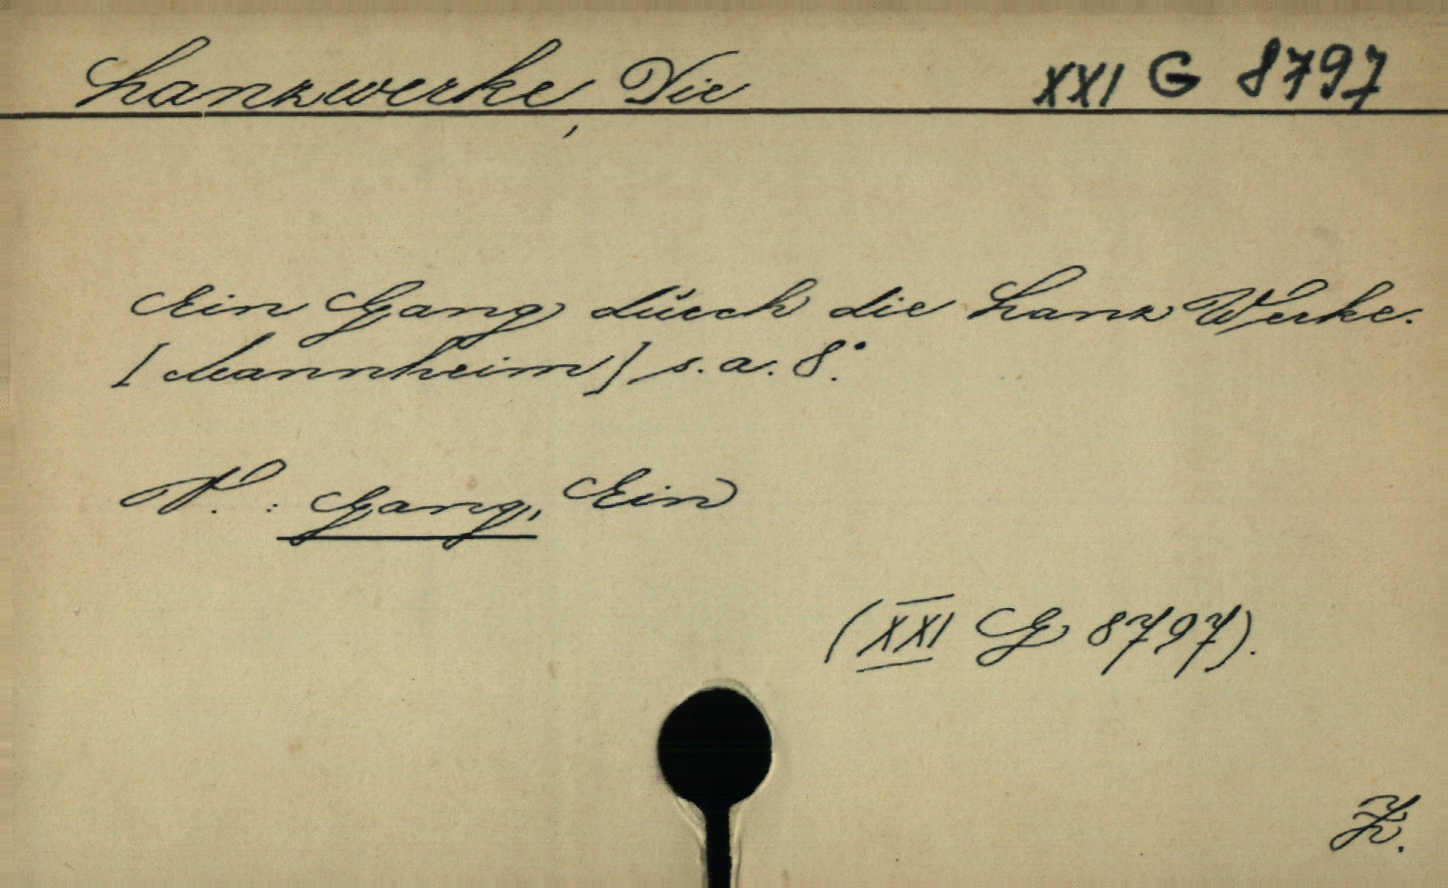 Lanzwerke, Die XXI G 8797
Ein Gang durch die Lanz Werke.
[Mannheim] s. a. 8°.
V.: Gang, Ein
(XXI G 8797).